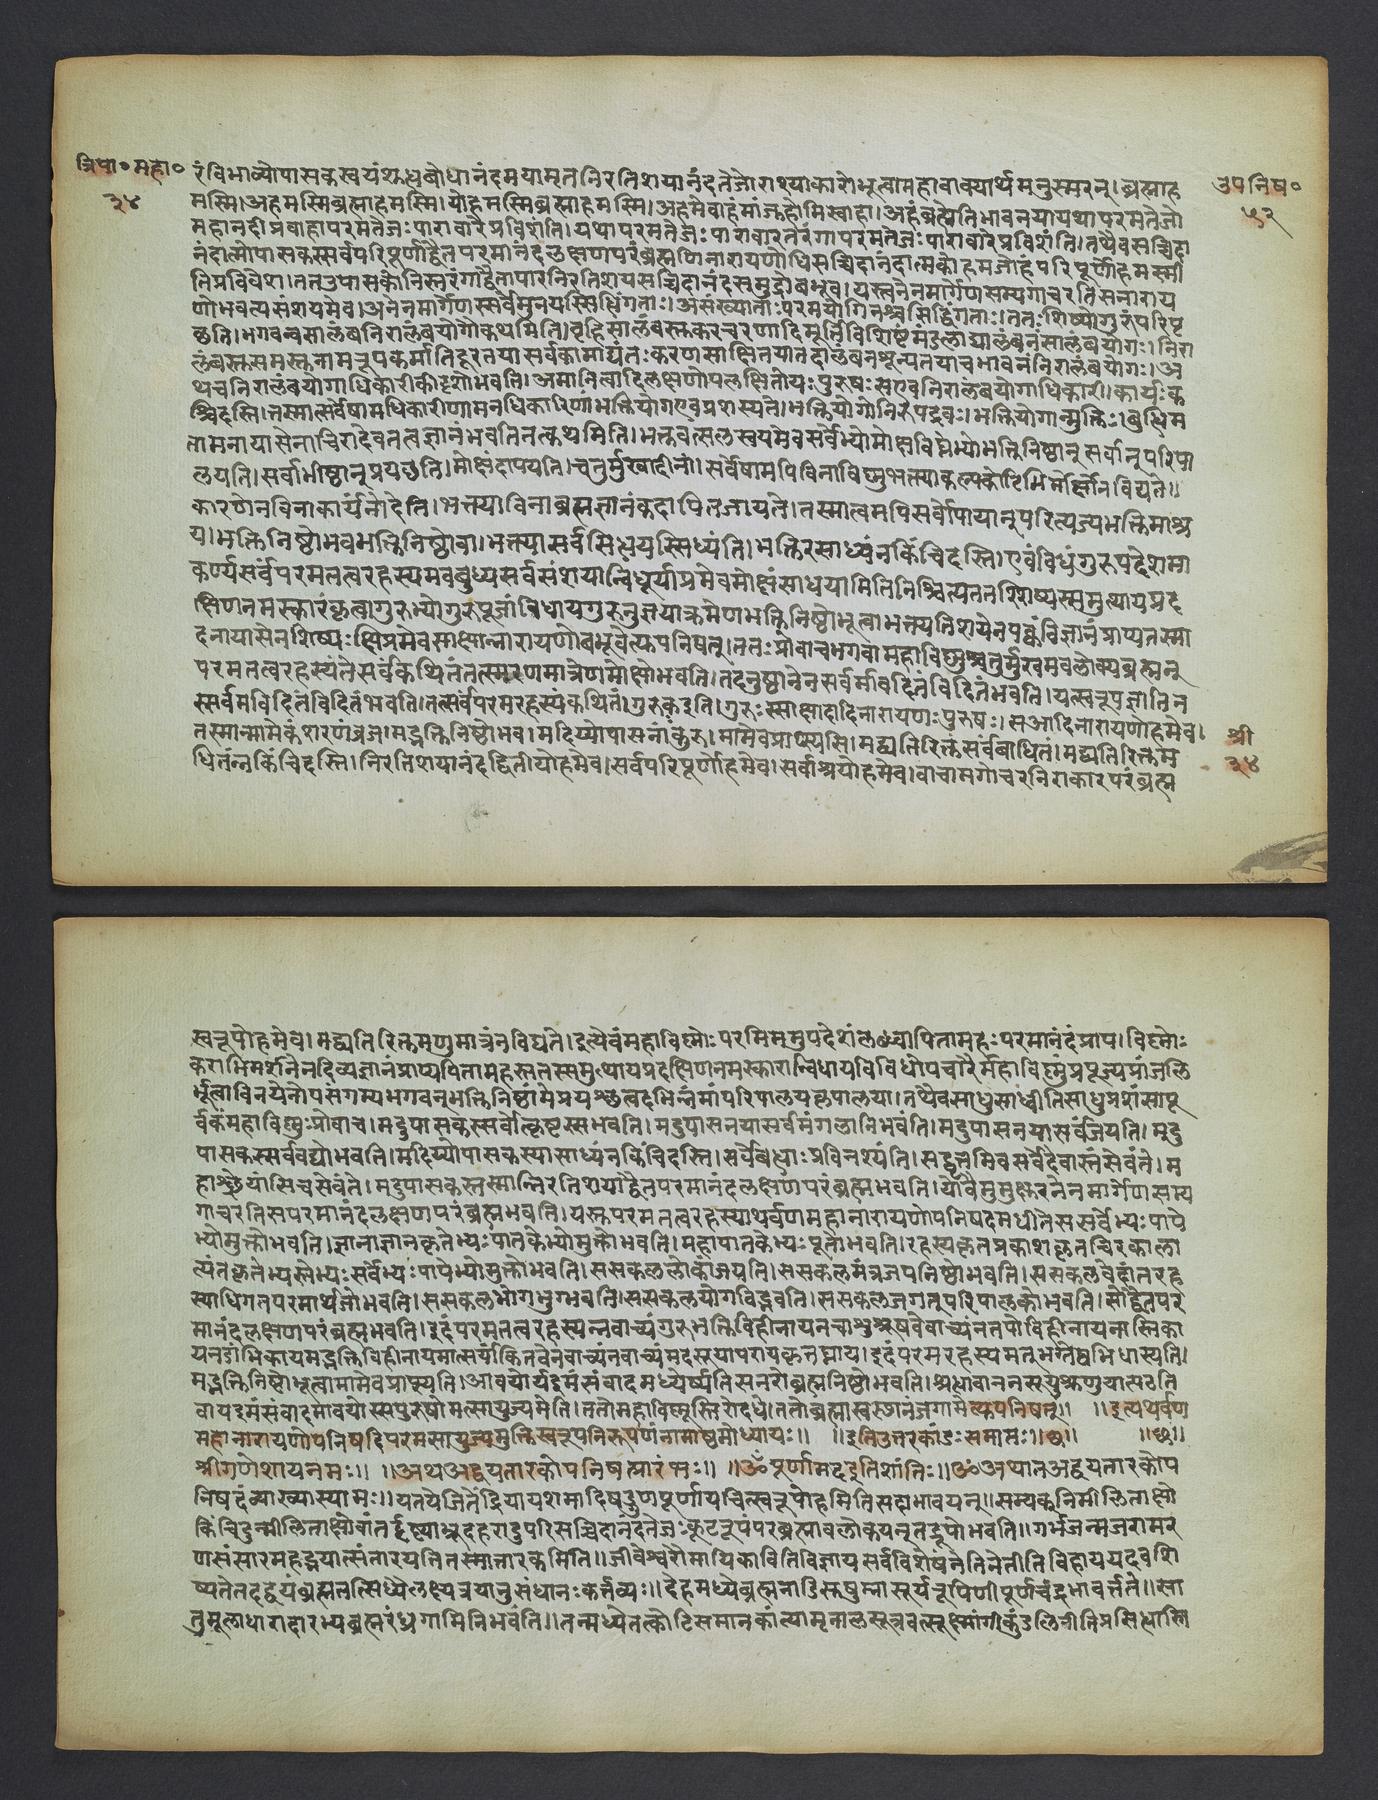 त्रिपा॰महा॰
३४
उपनिष॰
५२
रंविभाव्योपासकस्वयंशुद्धबोधानंदमयामृतनिरतिशयानंदतेजोराश्याकारोभूत्वामहावाक्यार्थमनुस्मरन्।ब्रह्माह
मस्मि।अहमस्मिब्रह्माहमस्मि।योहमस्मिब्रह्माहमस्मि।अहमेवाहंमांजुहोमिस्वाहा।अहंब्रह्मेतिभावनयायथापरमतेजो
महानदीप्रवाहापरमतेजःपारावारेप्रविशति।यथापरमतेजःपारावारतरंगापरमतेजःपारावारेप्रविशंति।तथैवसच्चिदा
नंदात्मोपासकस्सर्वपरिपूर्णाद्वैतपरमानंदलक्षणपरंब्रह्मणिनारायणोधिसच्चिदानंदात्मकोहमजोहंपरिपूर्णोहमस्मी
तिप्रविवेश।ततउपासकोनिस्तरंगाद्वैतापारनिरतिशयसच्चिदानंदसमुद्रोबभूव।यस्त्वनेनमार्गेणसम्यगाचरतिसनाराय
णोभवत्यसंशयमेव।अनेनमार्गेणस्सर्वेमुनयस्सिधिंगताः।असंख्याताःपरमयोगिनश्चसिद्धिंगताः।ततःशिष्योगुरुंपरिपृ
छति।भगवन्वसालंबनिरालंबयोगोकथमिति।ब्रूहिसालंबस्तकरचरणादिमूर्तिविशिष्टंमंडलाद्यालंबनंसालंबयोगः।निरा
लंबस्तसमस्तनामरूपकर्मातिदूरतयासर्वकामाद्यंतःकरणसाक्षितयातदालंबनशून्यतयाचभावनंनिरालंबयोगः।अ
थचनिरालंबयोगाधिकारीकीदृशोभवति।अमानित्वादिलक्षणोपलक्षितोयःपुरुषःसएवनिरालंबयोगाधिकारी।कार्यःक
श्चिदस्ति।तस्मात्सर्वेषामधिकारीणामनधिकारिणांभक्तियोगएवप्रशस्यते।भक्तियोगोनिरुपद्रवः।भक्तियोगान्मुक्तिः।बुधिम
तामनायासेनाचिरादेवतत्वज्ञानंभवतितत्कथमिति।भक्तवत्सलस्वयमेवसर्वेभ्योमोक्षविघ्नेभ्योभक्तिनिष्ठान्सर्वान्परिपा
लयति।सर्वाभीष्ठान्प्रयछति।मोक्षंदापयति।चतुर्मुखादीनां।सर्वेषामपिविनाविष्णुभक्त्याकल्पकोटिभिर्मोक्षोनविद्यते॥
कारणेनविनाकार्यंनोदेति।भक्त्याविनाब्रह्मज्ञानंकदापिनजायते।तस्मात्वमपिसर्वोपायान्परित्यज्यभक्तिमाश्र
य।भक्तिनिष्ठोभवभक्तिनिष्ठोवा।भक्त्यासर्वसिधयस्सिध्यंति।भक्तिरसाध्यंनकिंचिदस्ति।एवंविधंगुरूपदेशमा
कर्ण्यसर्वंपरमतत्वरहस्यमवबुध्यसर्वसंशयान्विधूयक्षिप्रमेवमोक्षंसाधयामितिनिश्चित्यततःशिष्यस्समुत्थायप्रद
क्षिणनमस्कारंकृत्वागुरुभ्योगुरुपूजांविधायगुर्वनुज्ञयाक्रमेणभक्तिनिष्ठोभूत्वाभक्त्यतिशयेनपक्वंविज्ञानंप्राप्यतस्मा
दनायासेनशिष्यःक्षिप्रमेवसाक्षान्नारायणोबभूवेत्युपनिषत्।ततःप्रोवाचभगवान्महाविष्णुश्चतुर्मुखमवलोक्यब्रह्मन्
परमतत्वरहस्यंतेसर्वंकथितंतत्स्मरणमात्रेणमोक्षोभवति।तदनुष्ठानेनसर्वमविदितंविदितंभवति।यत्स्वरूपज्ञातिन
स्सर्वमविदितंविदितंभवति।तत्सर्वंपरमरहस्यंकथितं।गुरुकइति।गुरुःस्साक्षादादिनारायणःपुरुषः।सआदिनारायणोहमेव।
तस्मान्मामेकंशरणंव्रज।मद्भक्तिनिष्ठोभव।मदियोपासनांकुरु।मामेवप्राप्स्यसि।मद्व्यतिरिक्तंसर्वंबाधितं।मद्व्यतिरिक्तम
धितंन्नकिंचिदस्ति।निरतिशयानंदद्वितीयोहमेव।सर्वपरिपूर्णोहमेव।सर्वाश्रयोहमेव।वाचामगोचरनिराकारपरंब्रह्म
श्री
३४
स्वरूपोहमेव।मद्व्यतिरिक्तमणुमात्रंनविद्यते।इत्येवंमहाविष्णोःपरमिममुपदेशंलब्ध्वापितामहःपरमानंदंप्राप।विष्णोः
कराभिमर्शनेनदिव्यज्ञानंप्राप्यपितामहस्ततस्समुत्थायप्रदक्षिणनमस्कारान्विधायविविधोपचारैर्महाविष्णुंप्रपूज्यप्रांजलि
र्भूत्वाविनयेनोपसंगम्यभगवन्भक्तिनिष्ठांमेप्रयछत्वदभिन्नंमांपरिपालयकृपालया।तथैवसाधुसाध्वीतिसाधुप्रशंसापू
र्वकंमहाविष्णुःप्रोवाच।मदुपासकस्सर्वोत्कृष्टस्सभवति।मदुपासनयासर्वमंगलानिभवंति।मदुपासनयासर्वंजयति।मदु
पासकस्सर्ववंद्योभवति।मदियोपासकस्यासाध्यंनकिंचिदस्ति।सर्वेबंधाःप्रविनश्यंति।सद्वृत्तमिवसर्वेदेवास्तंसेवंते।म
हाश्रेयांसिचसेवंते।मदुपासकस्तस्मान्निरतिशयाद्वैतपरमानंदलक्षणपरंब्रह्मभवति।योवैमुमुक्षुरनेनमार्गेणसम्य
गाचरतिसपरमानंदलक्षणपरंब्रह्मभवति।यस्तपरमतत्वरहस्याथर्वणमहानारायणोपनिषदमधीतेससर्वेभ्यःपापे
भ्योमुक्तोभवति।ज्ञानाज्ञानकृतेभ्यःपातकेभ्योमुक्तोभवति।महापातकेभ्यःपूतोभवति।रहस्यकृतप्रकाशकृतचिरकाला
त्यंतकृतेभ्यस्तेभ्यःसर्वेभ्यःपापेभ्योमुक्तोभवति।ससकललोकांजयति।ससकलमंत्रजपनिष्ठोभवति।ससकलवेदांतरह
स्याधिगतपरमार्थज्ञोभवति।ससकलभोगभुग्भवति।ससकलयोगविद्भवति।ससकलजगत्परिपालकोभवति।सोद्वैतपर
मानंदलक्षणपरंब्रह्मभवति।इदंपरमतत्वरहस्यंन्नवाच्यंगुरुभक्तिविहीनायनचाशुश्रूषवेवाच्यंनतपोविहीनायनास्तिका
यनडांभिकायमद्भक्तिविहीनायमात्सर्यांकिततनवेनवाच्यंनवाच्यंमदसूयापरायकृतघ्नाय।इदंपरमरहस्यमत्भक्तेष्वभिधास्यति।
मद्भक्तिनिष्ठोभूत्वामामेवप्राप्स्यति।आवयोर्यइमंसंवादमध्येष्यतिसनरोब्रह्मनिष्ठोभवति।श्रधावाननसूयुश्शृणुयात्पठति
वायइमंसंवादमावयोस्सपुरुषोमत्सायुज्यमेति।ततोमहाविष्णुस्तिरोदधे।ततोब्रह्मास्वस्थानंजगामेत्युपनिषत्॥ ॥इत्यथर्वण
महानारायणोपनिषदिपरमसायुज्यमुक्तिस्वरूपनिरूपणंनामाष्ठमोध्यायः॥ ॥इतिउत्तरकांडःसमाप्तः॥छ॥ ॥छ॥
श्रीगणेशायनमः॥ ॥अथअद्वयतारकोपनिषत्प्रारंभः॥ ॥ॐपूर्णमदइतिशांतिः॥ॐअथातअद्वयतारकोप
निषदंव्याख्यास्यामः॥यतयेजितेंद्रियायशमादिषड्गुणपूर्णायचित्स्वरूपोहमितिसदाभावयन्॥सम्यक्निमीलिताक्षो
किंचिदुन्मीलिताक्षोवांतर्दृष्ट्याभ्रूदहरादुपरिसच्चिदानंदतेजःकूटरूपंपरब्रह्मावलोकयन्तद्रूपोभवति॥गर्भजन्मजरामर
णसंसारमहद्भयात्संतारयतितस्मात्तारकमिति॥जीवेश्वरौमायिकावितिविज्ञायसर्वविशेषंनेतिनेतीतिविहाययदवशि
ष्यतेतदद्वयंब्रह्मतत्सिध्यैलक्ष्यत्रयानुसंधानःकर्तव्यः॥देहमध्येब्रह्मनाडिस्तषुम्नासूर्यरूपिणीपूर्णचंद्राभावर्त्तते॥सा
तुमूलाधारादारभ्यब्रह्मरंध्रगामिनिभवंति॥तन्मध्येतत्कोटिसमानकांत्यामृनालसूत्रवत्सूक्ष्मांगीकुंडलिनीतिप्रसिधास्ति